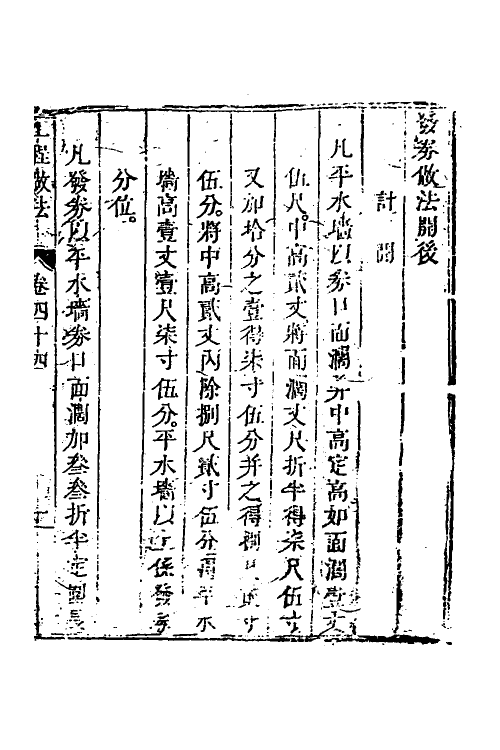 發券做法開後
計開
凡平水墻以券口面濶并中高定高如面濶壹丈
伍尺中高貳丈將面濶丈尺折半得柒尺伍寸
又加拾分之壹得柒寸伍分并之得捌尺貳寸
伍分。將中高貳丈內除捌尺貳寸伍分得平水
墻高壹丈壹尺柒寸伍分。平水墻以上係發券
分位。
凡發券以平水墻券口面濶加叁叁折半定圍長
工程做法
卷四十四